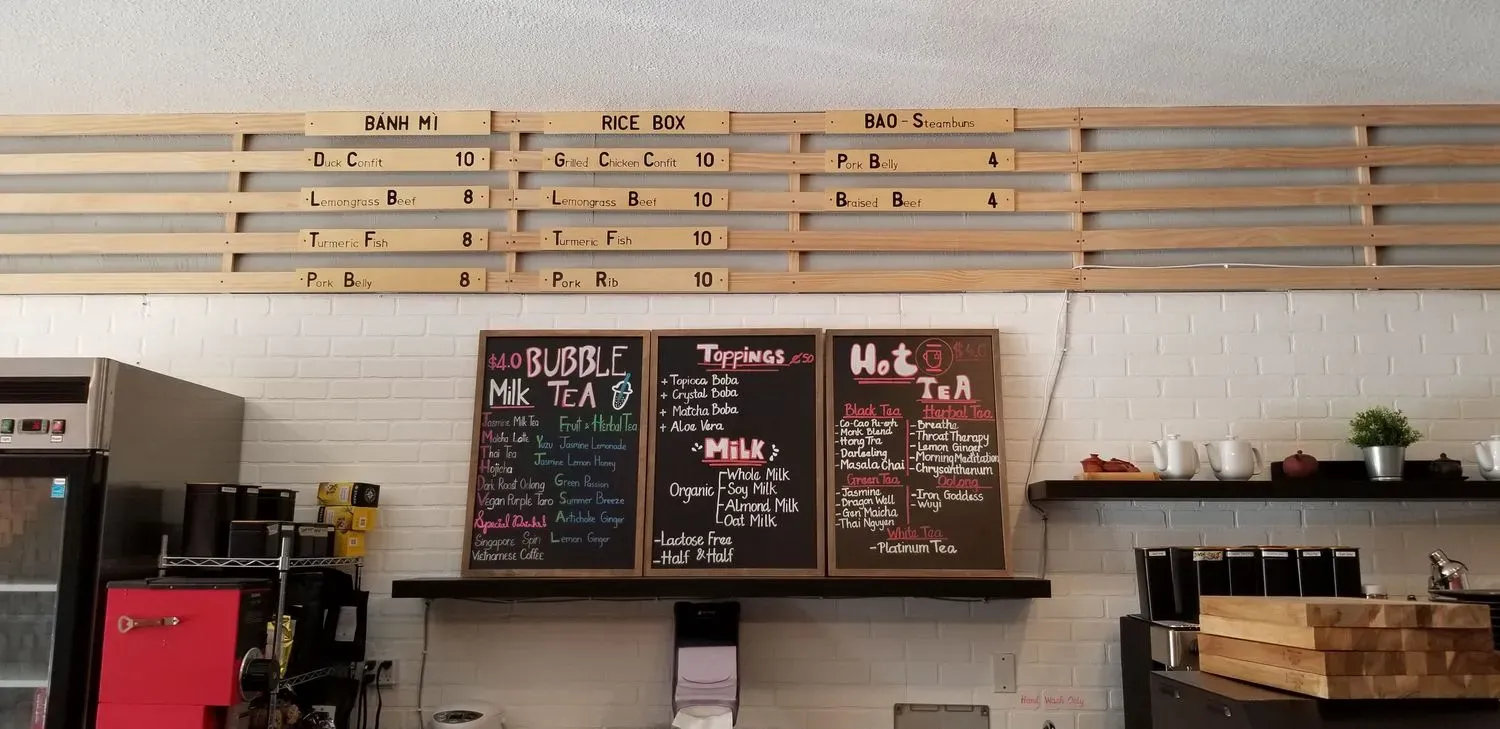 BÁNH MÌ
Duck Confit 10
Lemongrass Beef 8
Turmeric Fish 8
Pork Belly 8
RICE BOX
Grilled Chicken Confit 10
Lemongrass Beef 10
Turmeric Fish 10
Pork Rib 10
BAO - Steambuns
Pork Belly 4
Braised Beef 4
$4.0 BUBBLE
Milk TEA
Jasmine Milk Tea
Matcha Latte
Thai Tea
Hojicha
Dark Roast Oolong
Vegan Purple Taro
Special Drinks!
Singapore Spin
Vietnamese Coffee
Fruit & Herbal Tea
Yuzu Jasmine Lemonade
Jasmine Lemon Honey
Green Passion
Summer Breeze
Artichoke Ginger
Lemon Ginger
Toppings ¢50
+ Tapioca Boba
+ Crystal Boba
+ Matcha Boba
+ Aloe Vera
Milk
Organic
Whole Milk
- Soy Milk
- Almond Milk
Oat Milk
- Lactose Free
- Half & Half
Hot $4.0
TEA
Black Tea
- Monk Blend
- Hong Tra
- Darjeeling
- Masala Chai
Green Tea
- Jasmine
- Dragon Well
- Gen Maicha
- Thai Nguyen
Herbal Tea
- Breathe
- Throat Therapy
- Lemon Ginger
- Morning Meditation
- Chrysanthemum
Oolong
- Iron Goddess
- Wuyi
White Tea
- Platinum Tea
Hand Wash Only